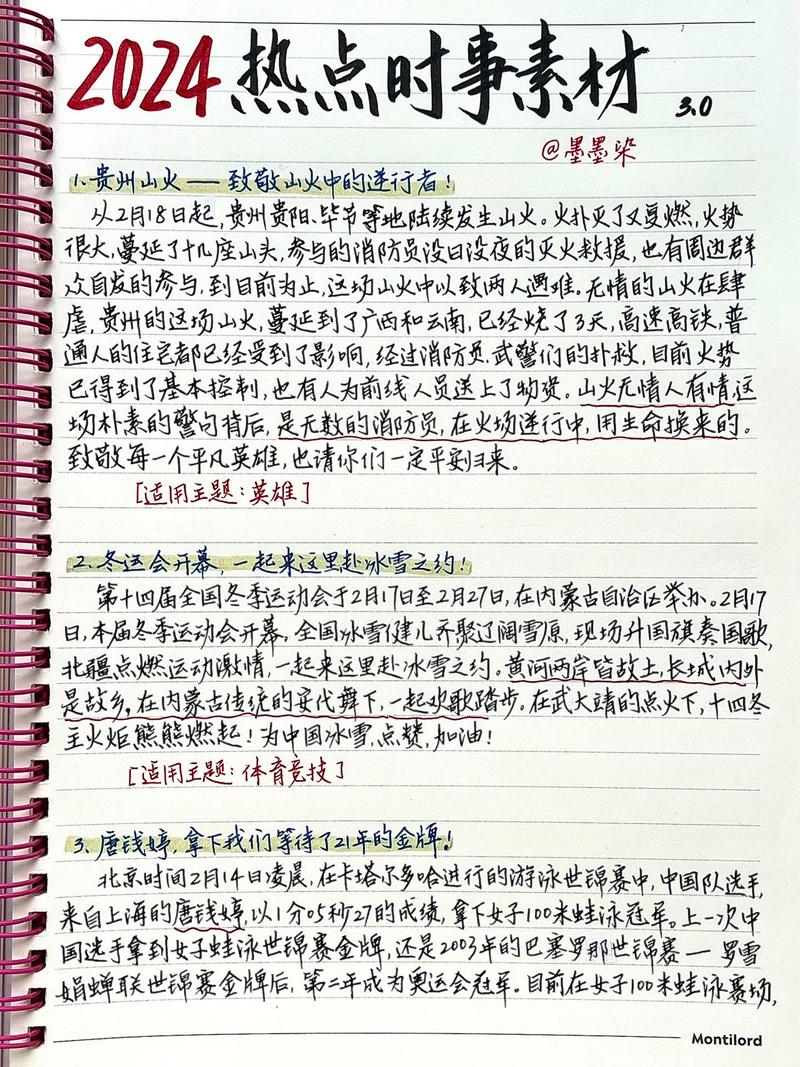 2024热点时事素材 3.0
@墨墨染
1.贵州山火——致敬山火中的逆行者！
从2月18日起,贵州贵阳、毕节等地陆续发生山火。火扑灭了又复燃,火势
很大,蔓延了十几座山头,参与的消防员没日没夜的灭火救援,也有周边群
众自发的参与,到目前为止,这场山火中以致两人遇难。无情的山火在肆
虐,贵州的这场山火,蔓延到了广西和云南,已经烧了3天,高速高铁,普
通人的住宅都已经受到了影响,经过消防员.武警们的扑救,目前火势
已得到了基本控制,也有人为前线人员送上了物资。山火无情人有情,这
场朴素的警句背后,是无数的消防员,在火场逆行中,用生命换来的。
致敬每一个平凡英雄,也请你们一定平安归来。
[适用主题:英雄]
2.冬运会开幕,一起来这里赴冰雪之约！
第十四届全国冬季运动会于2月17日至2月27日,在内蒙古自治区举办。2月17
日,本届冬季运动会开幕,全国冰雪健儿齐聚辽阔雪原,现场升国旗奏国歌,
北疆点燃运动激情,一起来这里赴冰雪之约。黄河两岸皆故土,长城内外
是故乡,在内蒙古传统的安代舞下,一起欢歌踏步。在武大靖的点火下,十四冬
主火炬熊熊燃起！为中国冰雪,点赞,加油！
[适用主题:体育竞技]
3.唐钱婷,拿下我们等待了21年的金牌！
北京时间2月14日凌晨,在卡塔尔多哈进行的游泳世锦赛中,中国队选手,
来自上海的唐钱婷,以1分05秒27的成绩,拿下女子100米蛙泳冠军。上一次中
国选手拿到女子蛙泳世锦赛金牌,还是2003年的巴塞罗那世锦赛—罗雪
娟蝉联世锦赛金牌后,第二年成为奥运会冠军。目前在女子100米蛙泳赛场,
Montilord